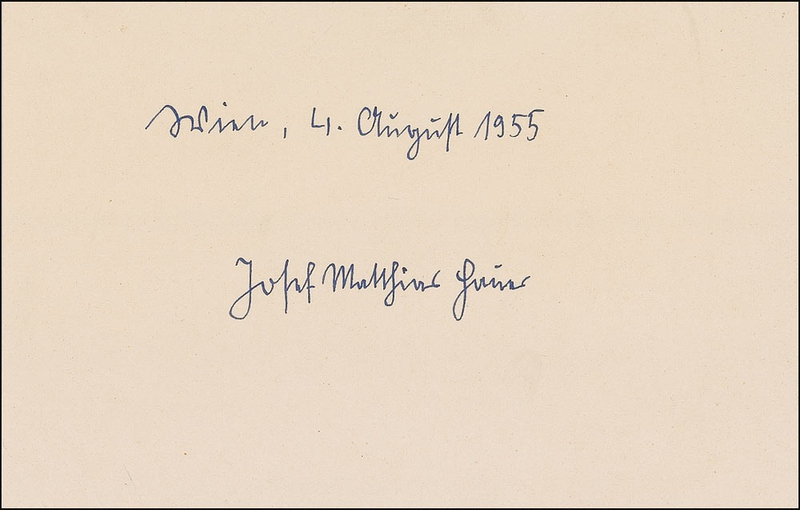 Wien, 4. August 1955
Josef Matthias Hauer